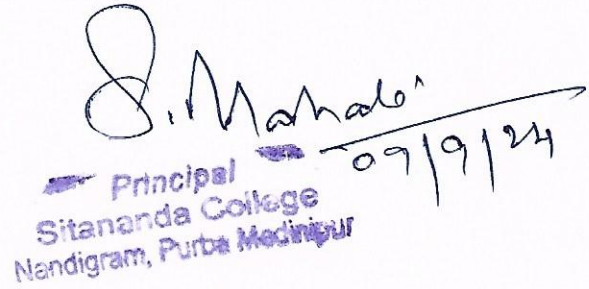 S. Mahali
09/9/24
Principal
Sitananda College
Nandigram, Purba Medinipur